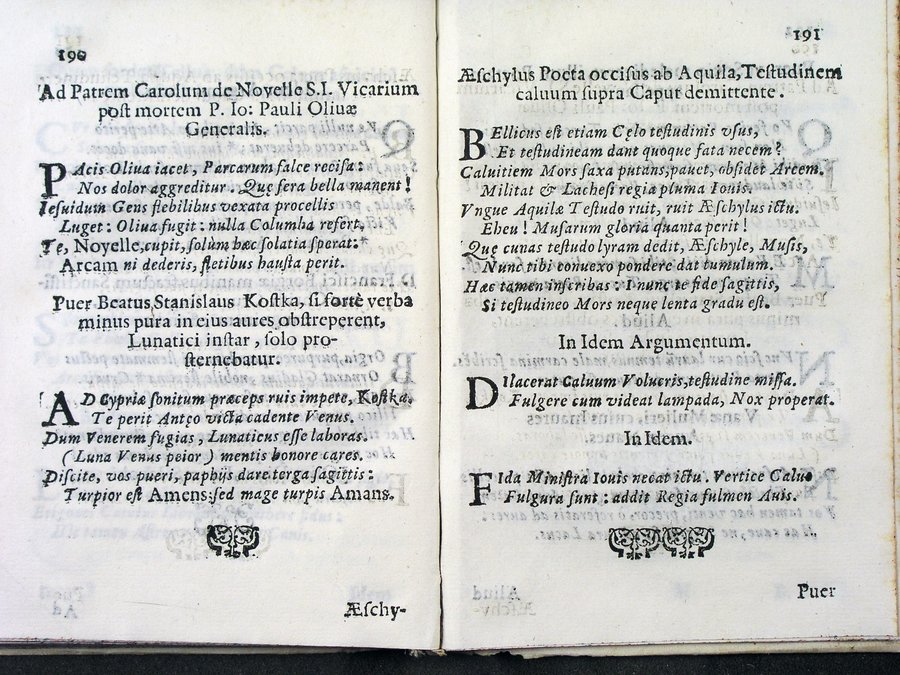 190
Ad Patrem Carolum de Noyelle S.I. Vicarium
post mortem P. Io: Pauli Oliuæ
Generalis.
PAcis Oliua iacet, Parcarum falce recisa:
Nos dolor aggreditur. Quę fera bella manent!
Iesuidum Gens flebilibus vexata procellis
Luget: Oliua fugit: nulla Columba refert,
Te, Noyelle, cupit, solùm hæc solatia sperat:
Arcam ni dederis, fletibus hausta perit.
Puer Beatus Stanislaus Kostka, si fortè verba
minus pura in eius aures obstreperent,
Lunatici instar, solo pro-
sternebatur.
AD Cypriæ sonitum præceps ruis impete, Kostka.
Te perit Antęo victa cadente Venus.
Dum Venerem fugias, Lunaticus esse laboras.
(Luna Venus peior) mentis honore cares.
Discite, vos pueri, paphijs dare terga sagittis:
Turpior est Amens: sed mage turpis Amans.
Æschy-
191
Æschylus Poeta occisus ab Aquila, Testudinem
caluum supra Caput demittente.
BEllicus est etiam Cęlo testudinis vsus,
Et testudineam dant quoque fata necem?
Caluitiem Mors saxa putans, pauet, obsidet Arcem.
Militat & Lachesi regia pluma Iouis.
Vngue Aquilæ Testudo ruit, ruit Æschylus ictu.
Eheu! Musarum gloria quanta perit!
Quę cunas testudo lyram dedit, Æschyle, Musis,
Nunc tibi conuexo pondere dat tumulum.
Hæc tamen inscribas: I nunc te fide sagittis,
Si testudineo Mors neque lenta gradu est.
In Idem Argumentum.
DIlacerat Caluum Volucris, testudine missa.
Fulgere cum videat lampada, Nox properat.
In Idem.
FIda Ministra Iouis necat ictu. Vertice Caluo
Fulgura sunt: addit Regia fulmen Auis.
Puer